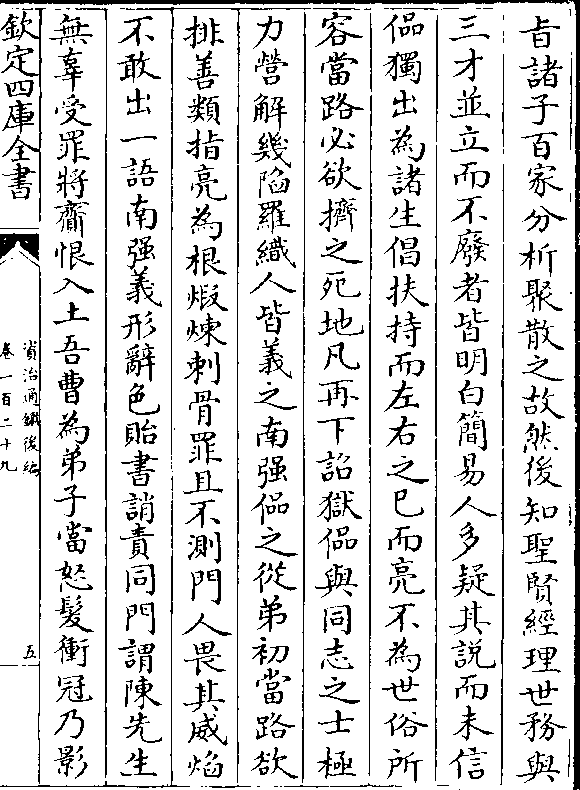 旨諸子百家分析聚散之故然後知聖賢經理世務與
三才並立而不廢者皆明白簡易人多疑其說而未信
偘獨出為諸生倡扶持而左右之已而亮不為世俗所
容當路必欲擠之死地凡再下詔獄偘與同志之士極
力營解幾陷羅織人皆義之南强偘之從弟初當路欲
排善類指亮為根煆煉刺骨罪且不測門人畏其威焰
不敢出一語南强義形辭色貽書誚責同門謂陳先生
無辜受罪將齎恨入土吾曹為弟子當怒髮衝冠乃影
欽定四庫全書
資治通鑑後編
卷一百二十九
五